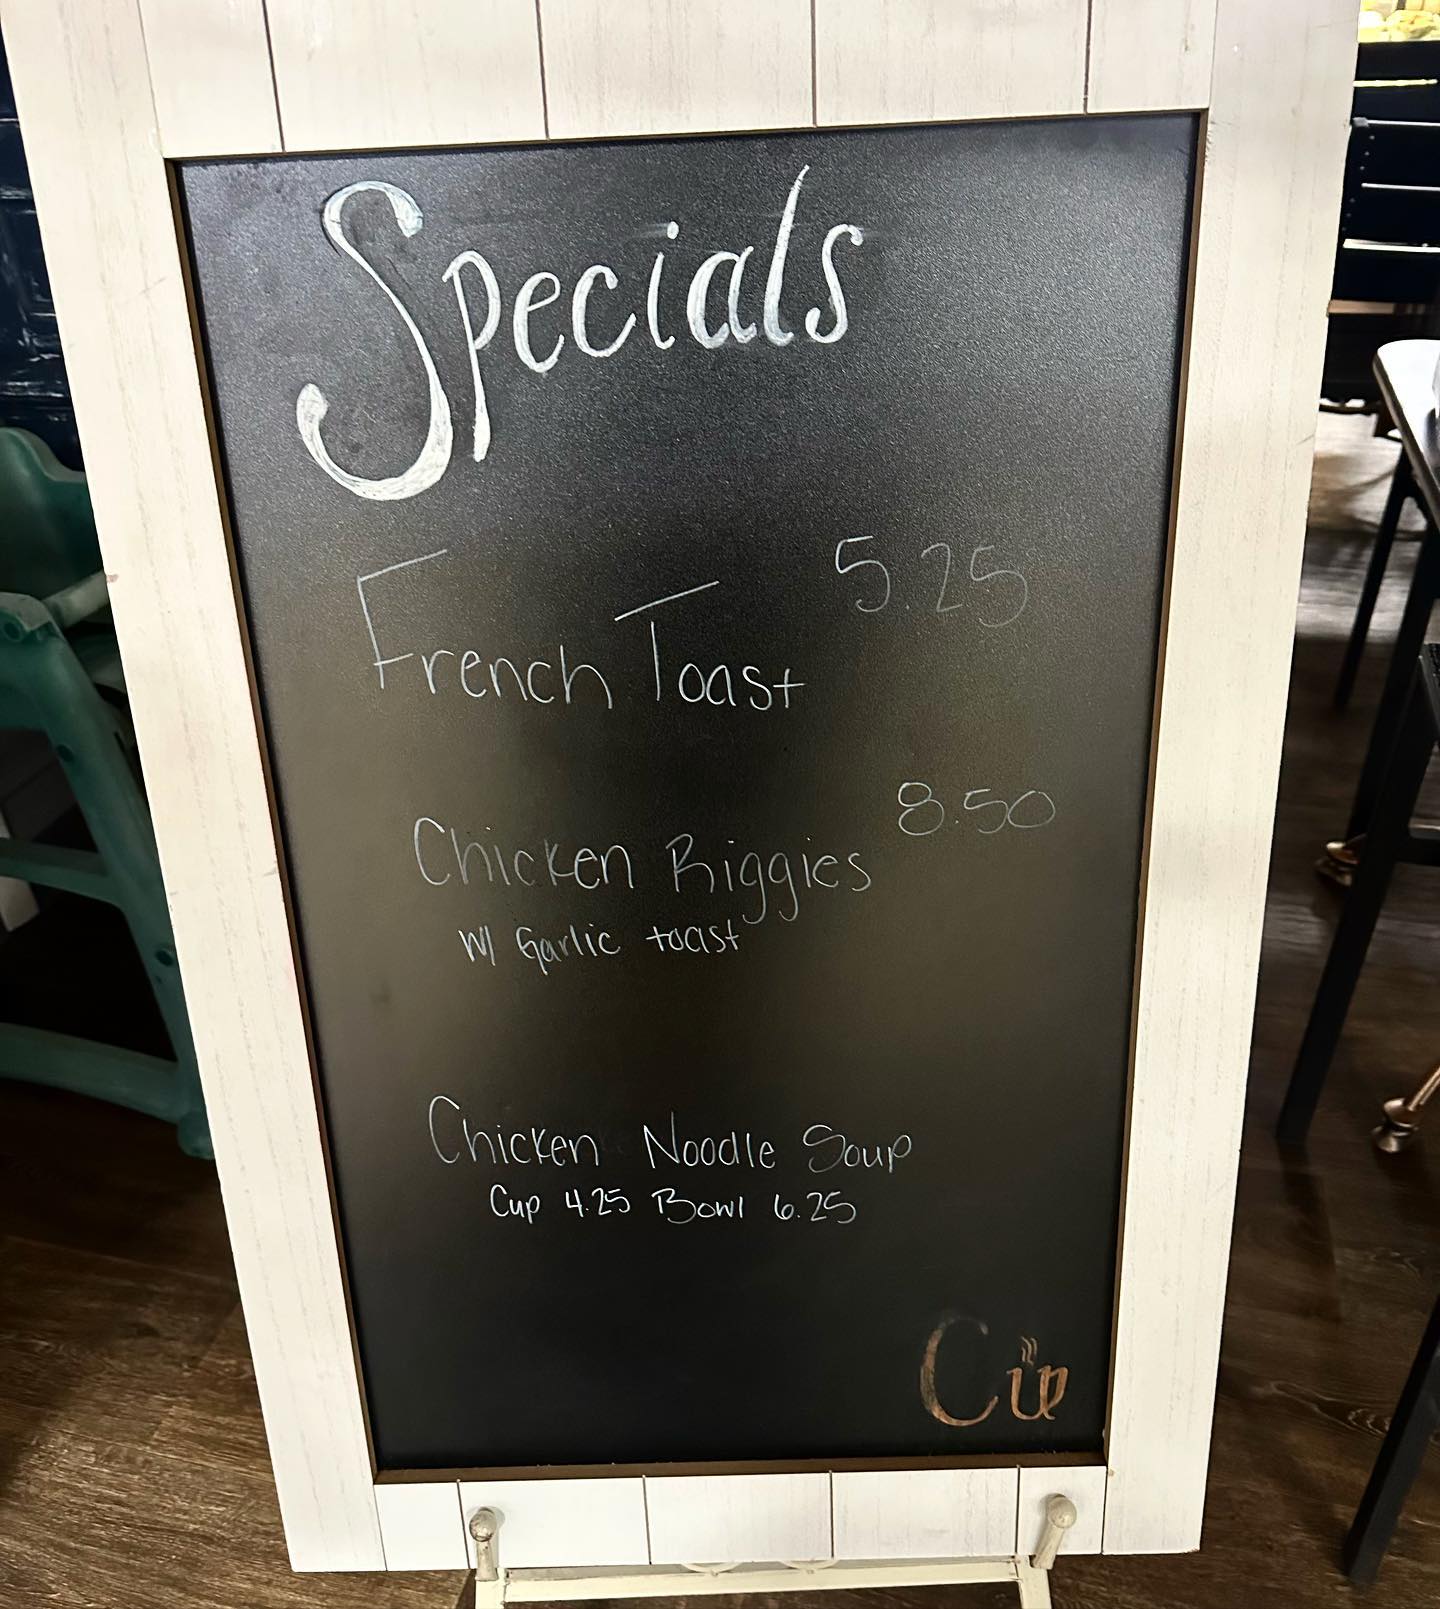 Specials
French Toast 5.25
Chicken Riggies 8.50
w/ Garlic toast
Chicken Noodle Soup
Cup 4.25 Bowl 6.25
Cup